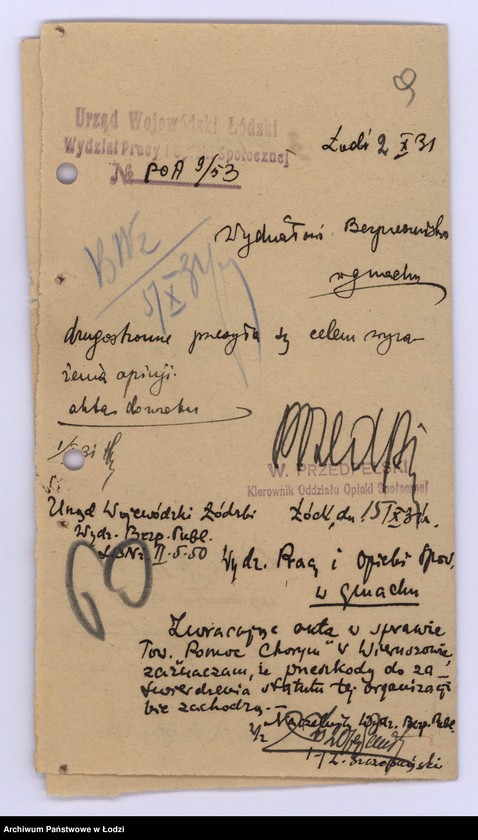 9
Urząd Wojewódzki Łódzki
Wydział Pracy i Opieki Społecznej
№ POA 9/53
Łódź 2 X 31
Wydziałowi Bezpieczeństwa
w gmachu
BNz
5/X 31
drugostronne przesyła się celem wyra-
żenia opinji.
W. PRZEDPEŁSKI
Kierownik Oddziału Opieki Społecznej
Urząd Wojewódzki Łódzki
Wydz. Bezp. Publ.
L. BNz. II-5-50
Łódź, dn. 15/X 31 r.
Wydz. Pracy i Opieki Społ.
w gmachu
Zwracając akta w sprawie
Tow. "Pomoc Chorym" w Wieruszowie,
zaznaczam, że przeszkody do za-
twierdzenia statutu tej organizacji
nie zachodzą.—
Naczelnik Wydz. Bezp. Publ.
Archiwum Państwowe w Łodzi